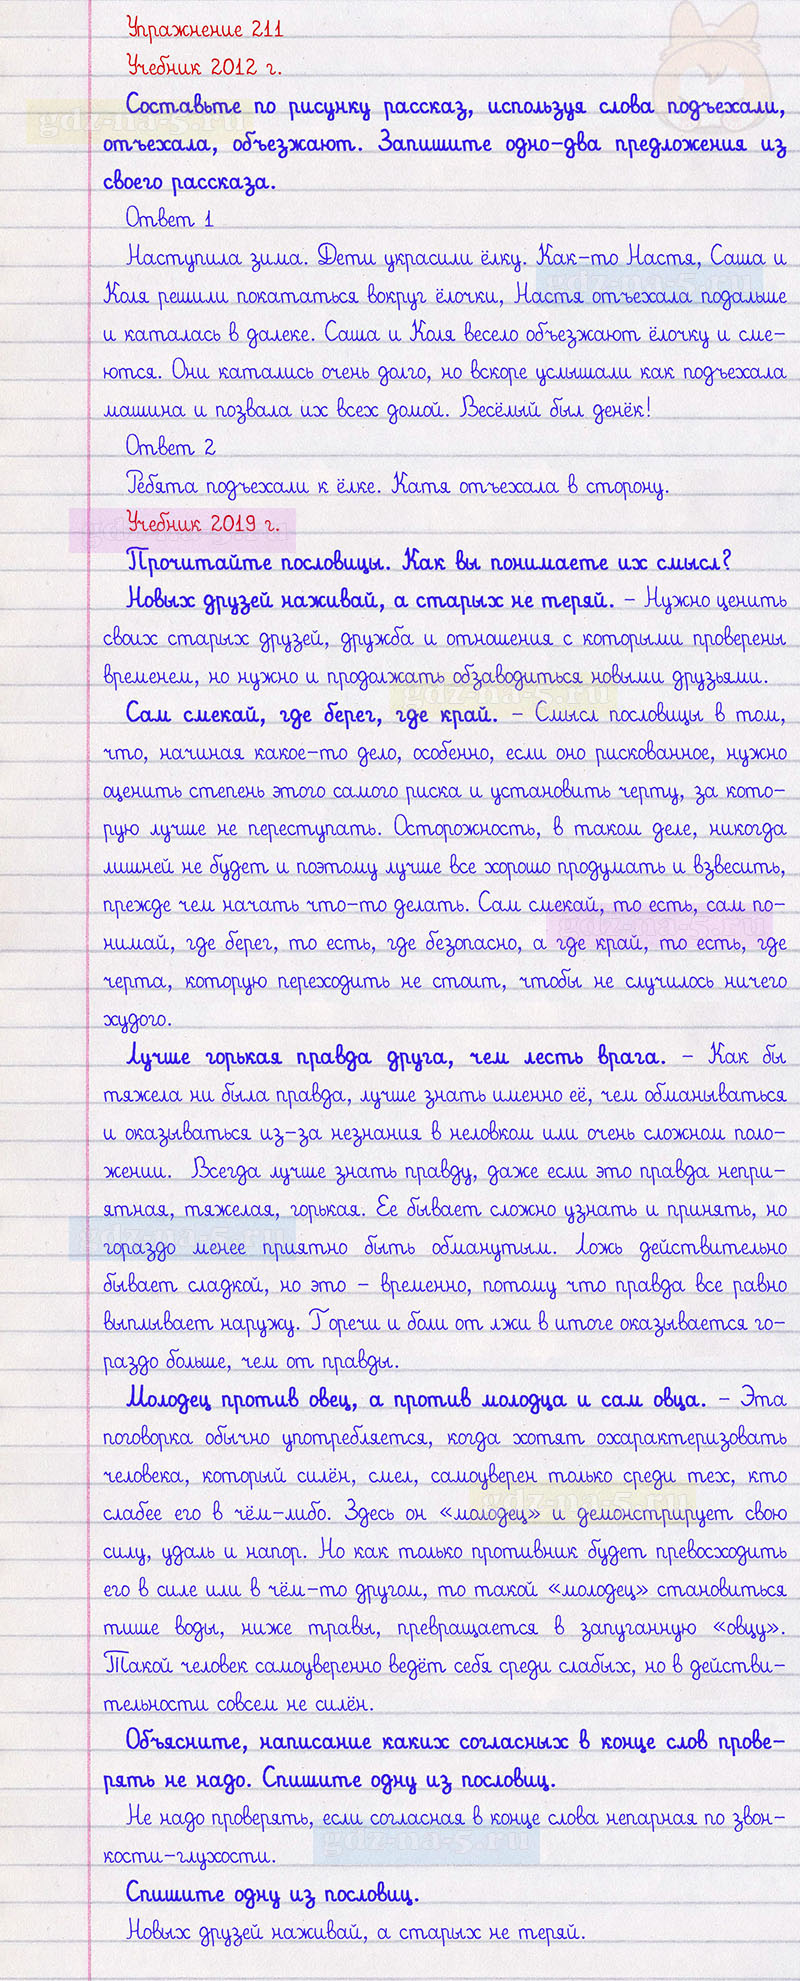 Упражнение 211
Учебник 2012 г.
Составьте по рисунку рассказ, используя слова подъехали,
отъехала, объезжают. Запишите одно-два предложения из
своего рассказа.
Ответ 1
Наступила зима. Дети украсили ёлку. Как-то Настя, Саша и
Коля решили покататься вокруг ёлочки, Настя отъехала подальше
и каталась в далеке. Саша и Коля весело объезжают ёлочку и сме-
ются. Они катались очень долго, но вскоре услышали как подъехала
машина и позвала их всех домой. Весёлый был денёк!
Ответ 2
Ребята подъехали к ёлке. Катя отъехала в сторону.
Учебник 2019 г.
Прочитайте пословицы. Как вы понимаете их смысл?
Новых друзей наживай, а старых не теряй. – Нужно ценить
своих старых друзей, дружба и отношения с которыми проверены
временем, но нужно и продолжать обзаводиться новыми друзьями.
Сам смекай, где берег, где край. – Смысл пословицы в том,
что, начиная какое-то дело, особенно, если оно рискованное, нужно
оценить степень этого самого риска и установить черту, за кото-
рую лучше не переступать. Осторожность, в таком деле, никогда
лишней не будет и поэтому лучше все хорошо продумать и взвесить,
прежде чем начать что-то делать. Сам смекай, то есть, сам по-
нимай, где берег, то есть, где безопасно, а где край, то есть, где
черта, которую переходить не стоит, чтобы не случилось ничего
худого.
Лучше горькая правда друга, чем лесть врага. – Как бы
тяжела ни была правда, лучше знать именно её, чем обманываться
и оказываться из-за незнания в неловком или очень сложном поло-
жении. Всегда лучше знать правду, даже если это правда непри-
ятная, тяжелая, горькая. Ее бывает сложно узнать и принять, но
гораздо менее приятно быть обманутым. Ложь действительно
бывает сладкой, но это – временно, потому что правда все равно
выплывает наружу. Горечи и боли от лжи в итоге оказывается го-
раздо больше, чем от правды.
Молодец против овец, а против молодца и сам овца. – Эта
поговорка обычно употребляется, когда хотят охарактеризовать
человека, который силён, смел, самоуверен только среди тех, кто
слабее его в чём-либо. Здесь он «молодец» и демонстрирует свою
силу, удаль и напор. Но как только противник будет превосходить
его в силе или в чём-то другом, то такой «молодец» становиться
тише воды, ниже травы, превращается в запуганную «овцу».
Такой человек самоуверенно ведёт себя среди слабых, но в действи-
тельности совсем не силён.
Объясните, написание каких согласных в конце слов прове-
рять не надо. Спишите одну из пословиц.
Не надо проверять, если согласная в конце слова непарная по звон-
кости-глухости.
Спишите одну из пословиц.
Новых друзей наживай, а старых не теряй.
gdz-na-5.ru
gdz-na-5.ru
gdz-na-5.ru
gdz-na-5.ru
gdz-na-5.ru
gdz-na-5.ru
gdz-na-5.ru
gdz-na-5.ru